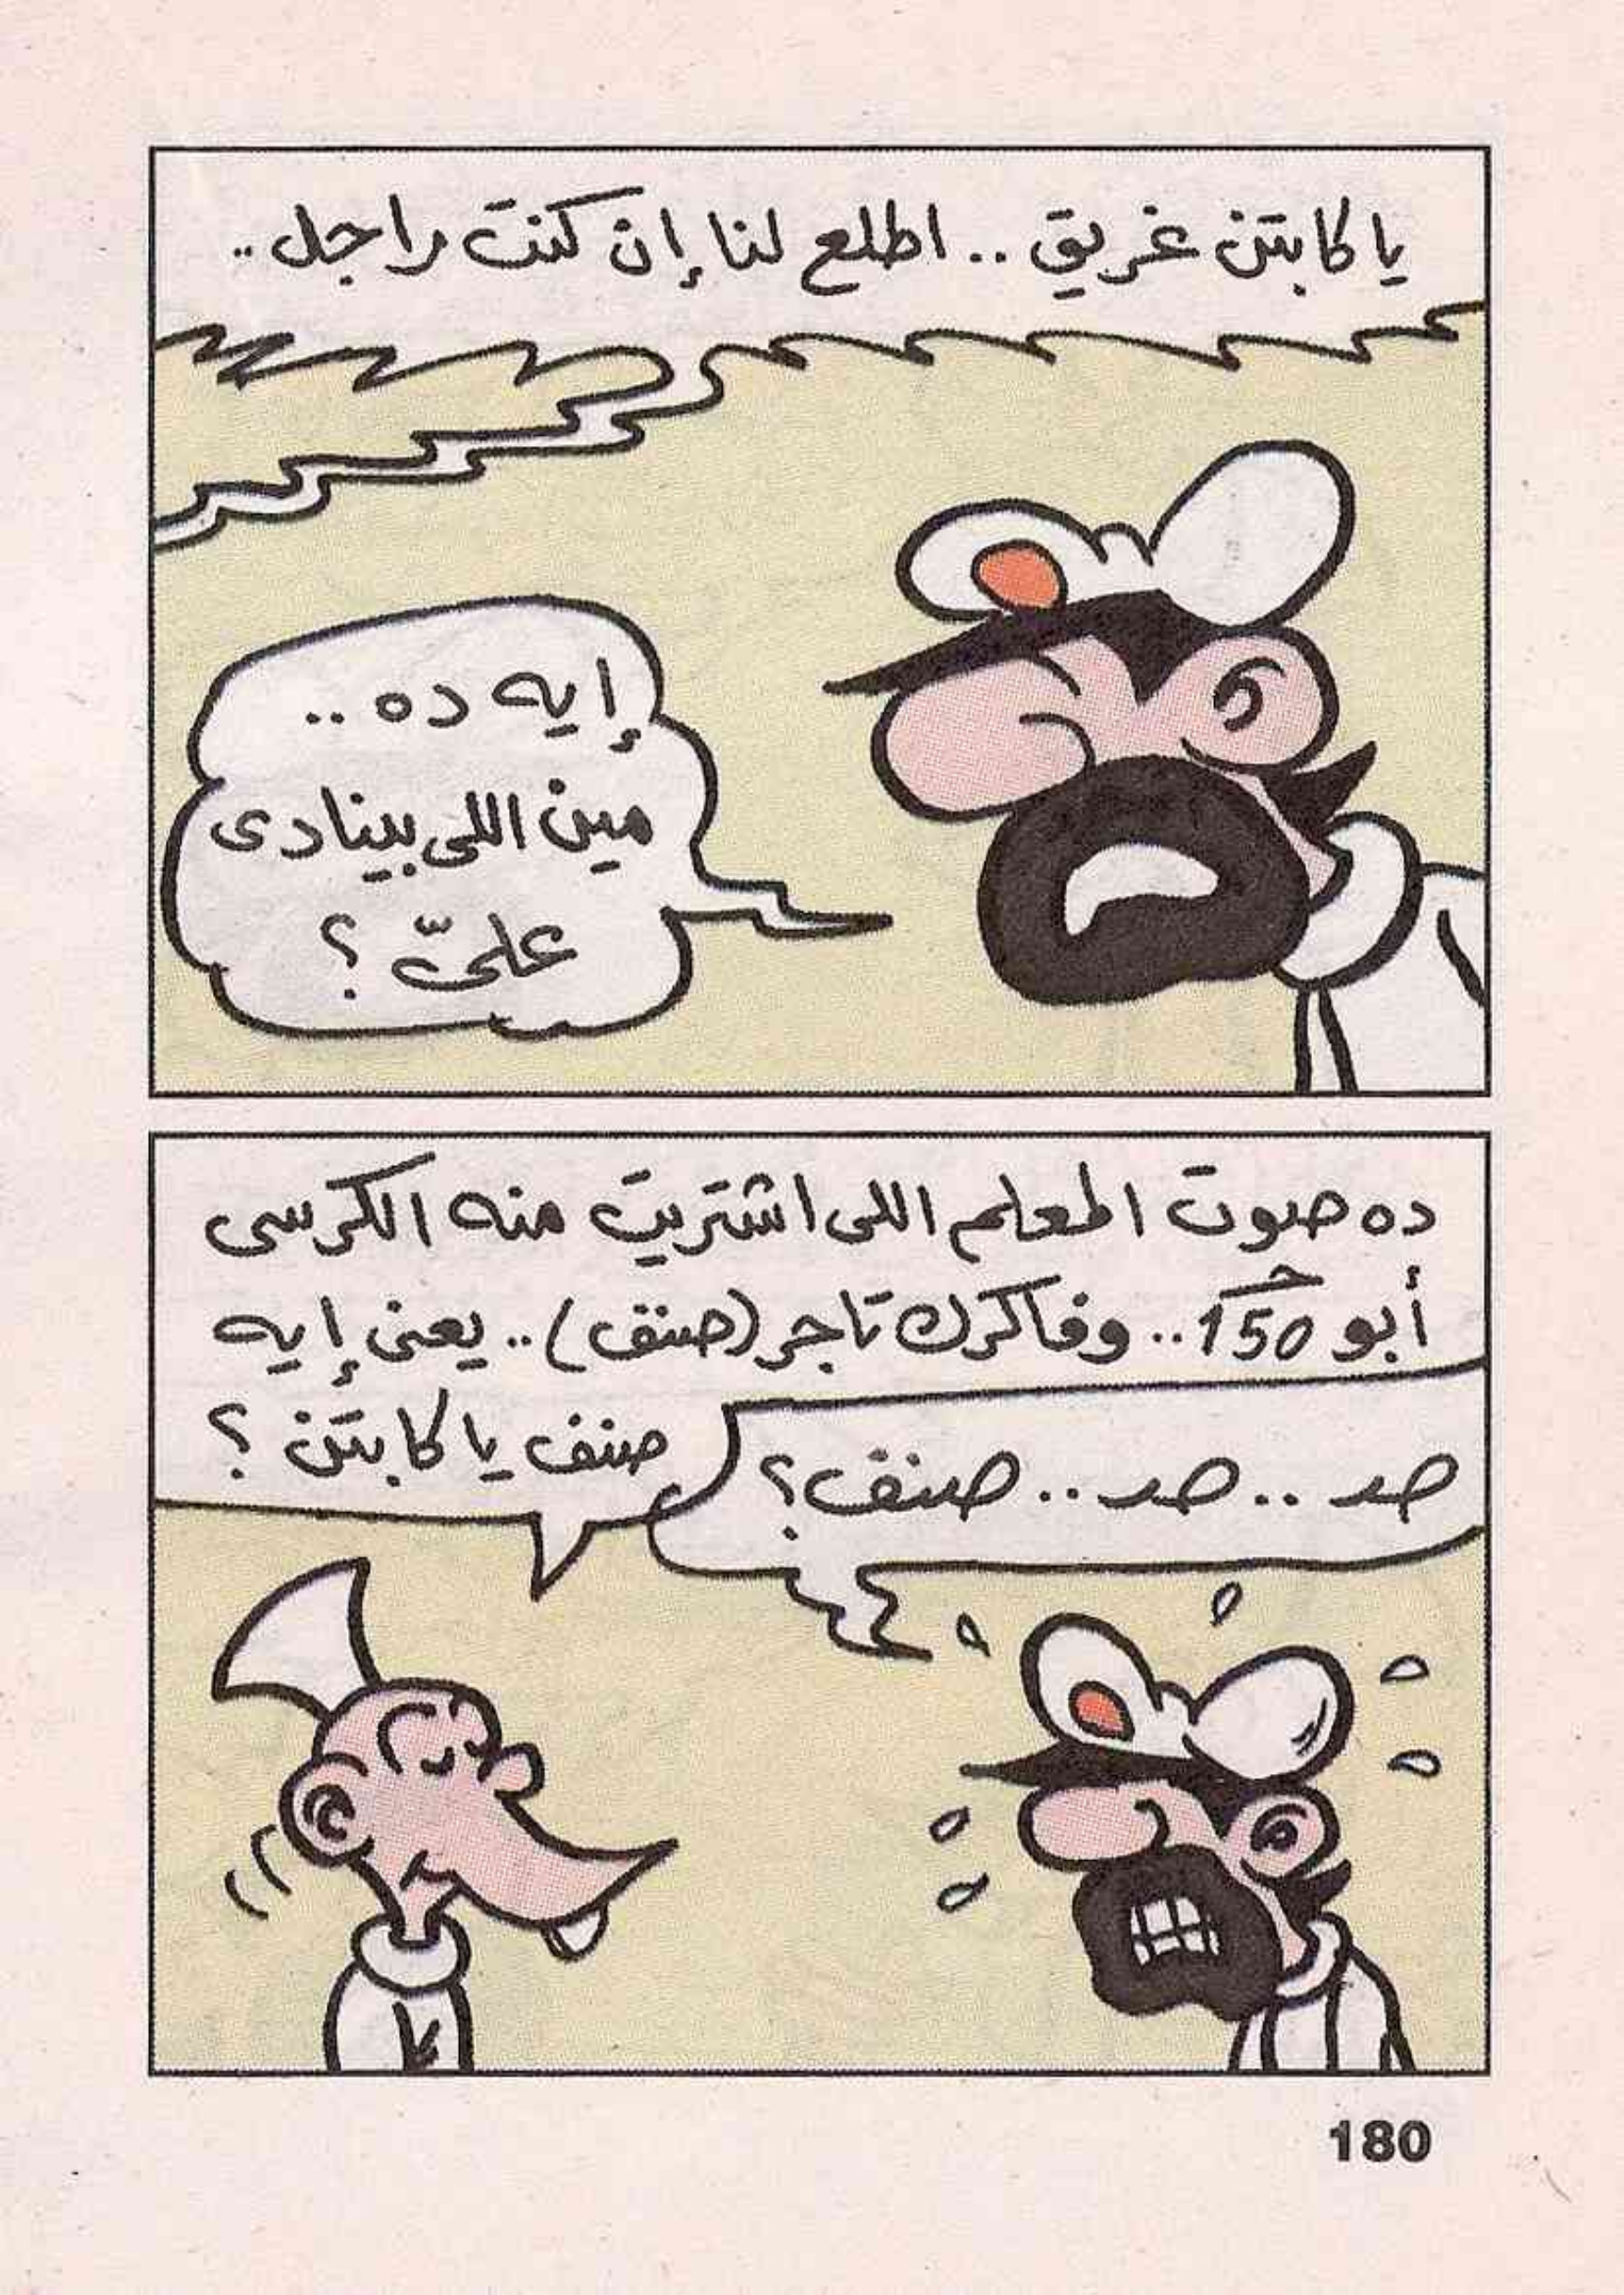 يا كابتن غريق .. اطلع لنا إن كنت راجل ..
إيه ده ..
مين اللى بينادى
علىّ ؟
ده صوت المعلم اللى اشتريت منه الكرسى
أبو 150 جـ .. وفاكرك تاجر (صنف) .. يعنى إيه
صنف يا كابتن ؟
صـ .. صـ .. صنف ؟
180